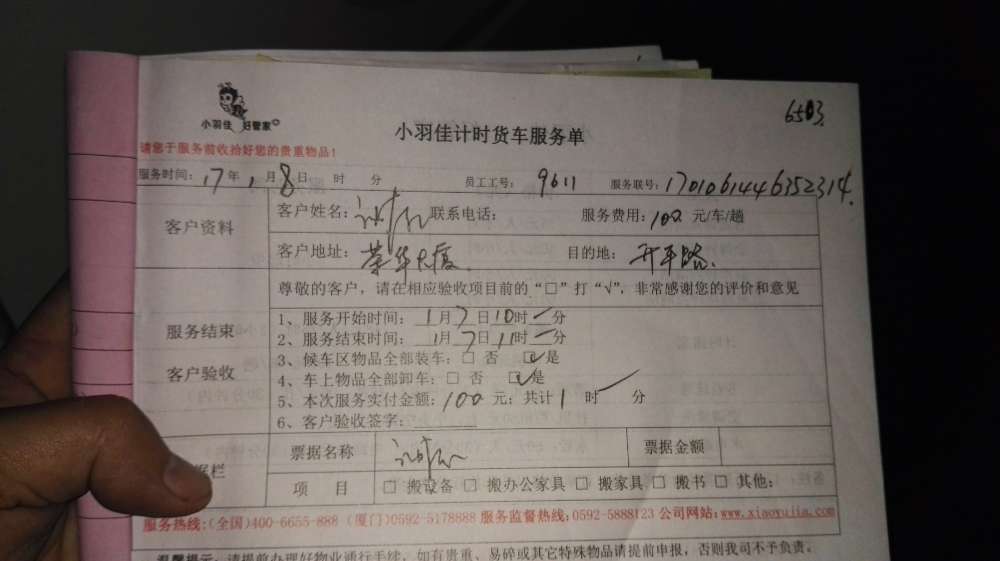 6503.
小羽佳 好管家
小羽佳计时货车服务单
请您于服务前收拾好您的贵重物品!
服务时间: 17年 1月 8日 时 分 员工工号: 9611 服务联号: 1701061446352314.
客户资料
客户姓名: 联系电话: 服务费用: 100 元/车/趟
客户地址: 荣华大厦 目的地: 开平路.
尊敬的客户,请在相应验收项目前的“□”打“√”,非常感谢您的评价和意见
服务结束
客户验收
1、服务开始时间: 1月 7日 10时 分
2、服务结束时间: 1月 7日 11时 分
3、候车区物品全部装车: □ 否 □ 是
4、车上物品全部卸车: □ 否 □ 是
5、本次服务实付金额: 100 元; 共计 1 时 分
6、客户验收签字:
据栏
票据名称 票据金额
项 目 □ 搬设备 □ 搬办公家具 □ 搬家具 □ 搬书 □ 其他:
服务热线:(全国)400-6655-888 (厦门)0592-5178888 服务监督热线:0592-5888123 公司网站:www.xiaoyujia.com
温馨提示: 请提前办理好物业通行手续, 如有贵重、易碎或其它特殊物品请提前申报, 否则我司不予负责。